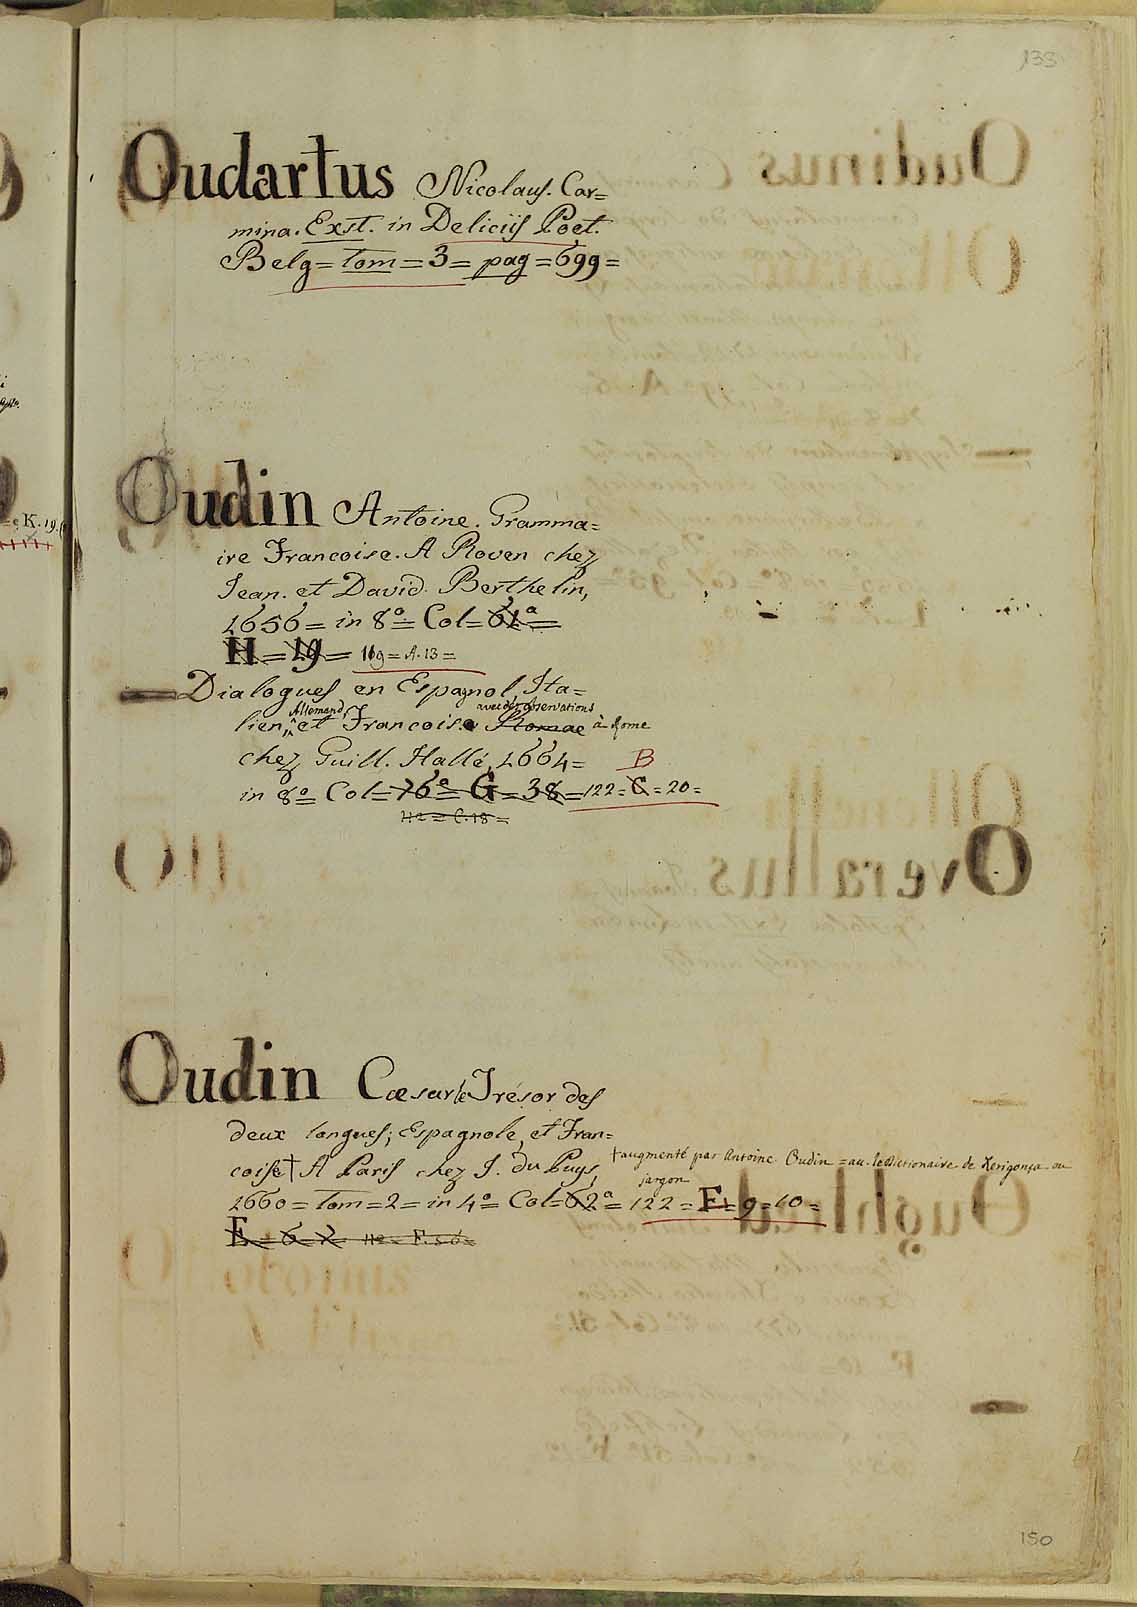 133
Oudartus Nicolaus. Car=
mina. Exst. in Deliciis Poet.
Belg = tom = 3 = pag = 699 =
Oudin Antoine. Gramma=
ire Francoise. A Roven chez
Jean. et David. Berthelin,
1656 = in 8º = Col = 61ª =
H = 19 = 119 = A. 13 =
Dialogues en Espagnol, Ita=
Allemand, avec des observations
lien, et Francoise Romae à Rome
chez Guill. Hallé, 1664 = B
in 8º = Col = 76ª = G = 38 = 122 = C = 20 =
112 = C. 18 =
Oudin Cæsar le Trésor des
deux langues; Espagnole, et Fran=
coise † A Paris chez J. du Puys, † augmenté par Antoine Oudin = au. le Dictionaire de Xerigonça ou
jargon
1660 = tom = 2 = in 4º Col = 62ª = 122 = F = 9 = 10 =
E = 6 = 7 = 112 = F. 56 =
150